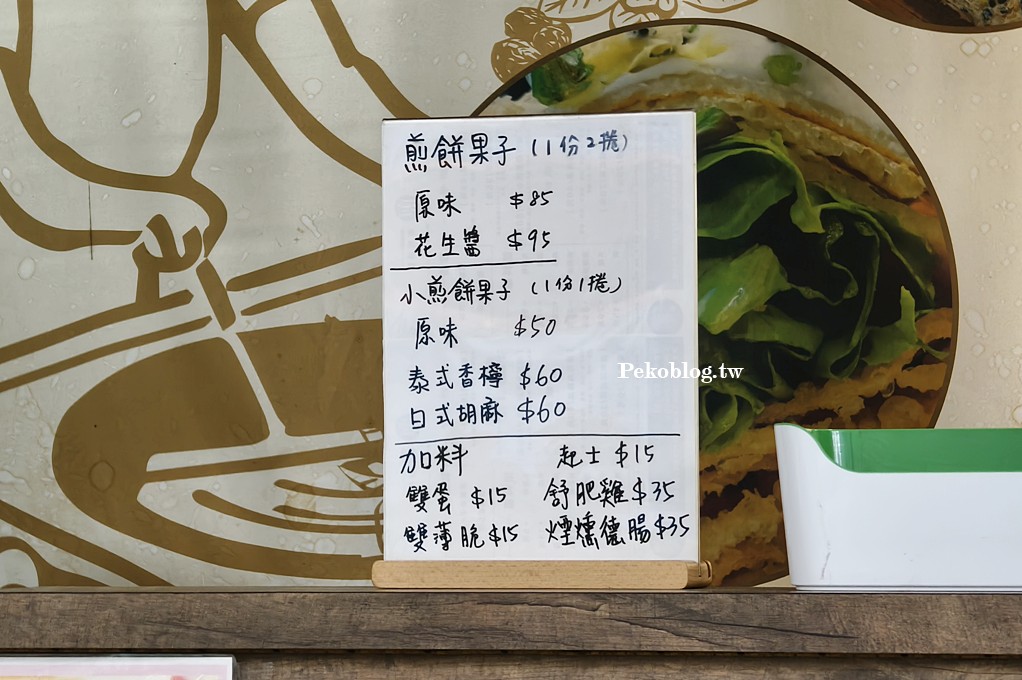 煎餅果子 (1份2捲)
原味 $85
花生醬 $95
小煎餅果子 (1份1捲)
原味 $50
泰式香檸 $60
日式胡麻 $60
加料 起士 $15
雙蛋 $15 舒肥雞 $35
雙薄脆 $15 煙燻德腸 $35
Pekoblog.tw